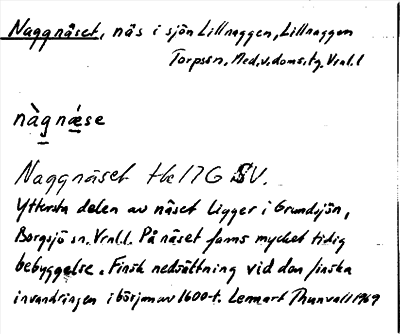 Naggnäset, näs i sjön Lillnaggen, Lillnaggen
Torpssn. Med.v.doms.tg. Vrnl.l
nàgnǽse
Naggnäset Hk17G SV.
Yttersta delen av näset ligger i Grundsjön,
Borgsjö sn. Vrnl.l. På näset fanns mycket tidig
bebyggelse. Finsk nedsättning vid den finska
invandringen i början av 1600-t. Lennart Thunvall 1969